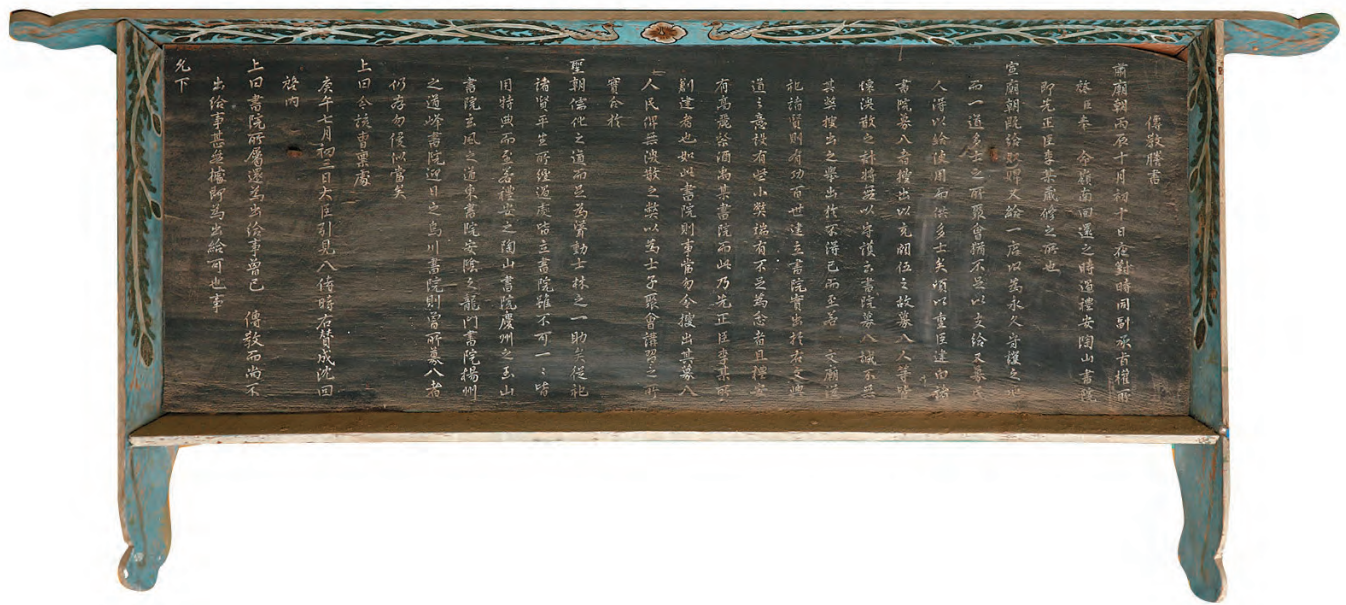 傳教謄書
肅廟朝丙辰十月初十日夜對時同副承旨權一所
啓臣奉 命嶺南回還之時過禮安陶山書院
即先正臣李某藏修之所也
宣廟朝給又給一店以爲永久守護之地
而一道多士之所聚會猶不足以支給又募良
人得以給使用而供多士矣頃以重臣建白諸
書院募入者搜出以充闕伍之故募入人等皆
懷渙散之計將無以守護云書院募入誠不無
其弊搜出之擧出於不得已而至若 文廟從
祀諸賢則有功百世建立書院實出於右文崇
道之意設有些小弊端有不足爲念者且禮安
有高某書院而此乃先正臣李某所
剏建者也如此書院則事當勿令搜出其募入
人民俾無渙散之弊以爲士子聚會講習之所
實合於
聖朝儒化之道而足爲聳動士林之一助矣從祀
諸賢平生所經過處皆立書院雖不可一〻皆
用特典而至若禮安之陶山書院慶州之玉山
書院玄風之道東書院安陰之龍門書院楊州
之道峰書院迎日之烏川書院則曾所募入者
仍存勿侵似當矣
上曰令該曹稟處
庚午七月初三日大臣引見入侍時右贊成沈 回
啓內
上曰書院所屬還爲出給事曾已 傳敎而尙不
出給事甚無據即爲出給可也事
允下